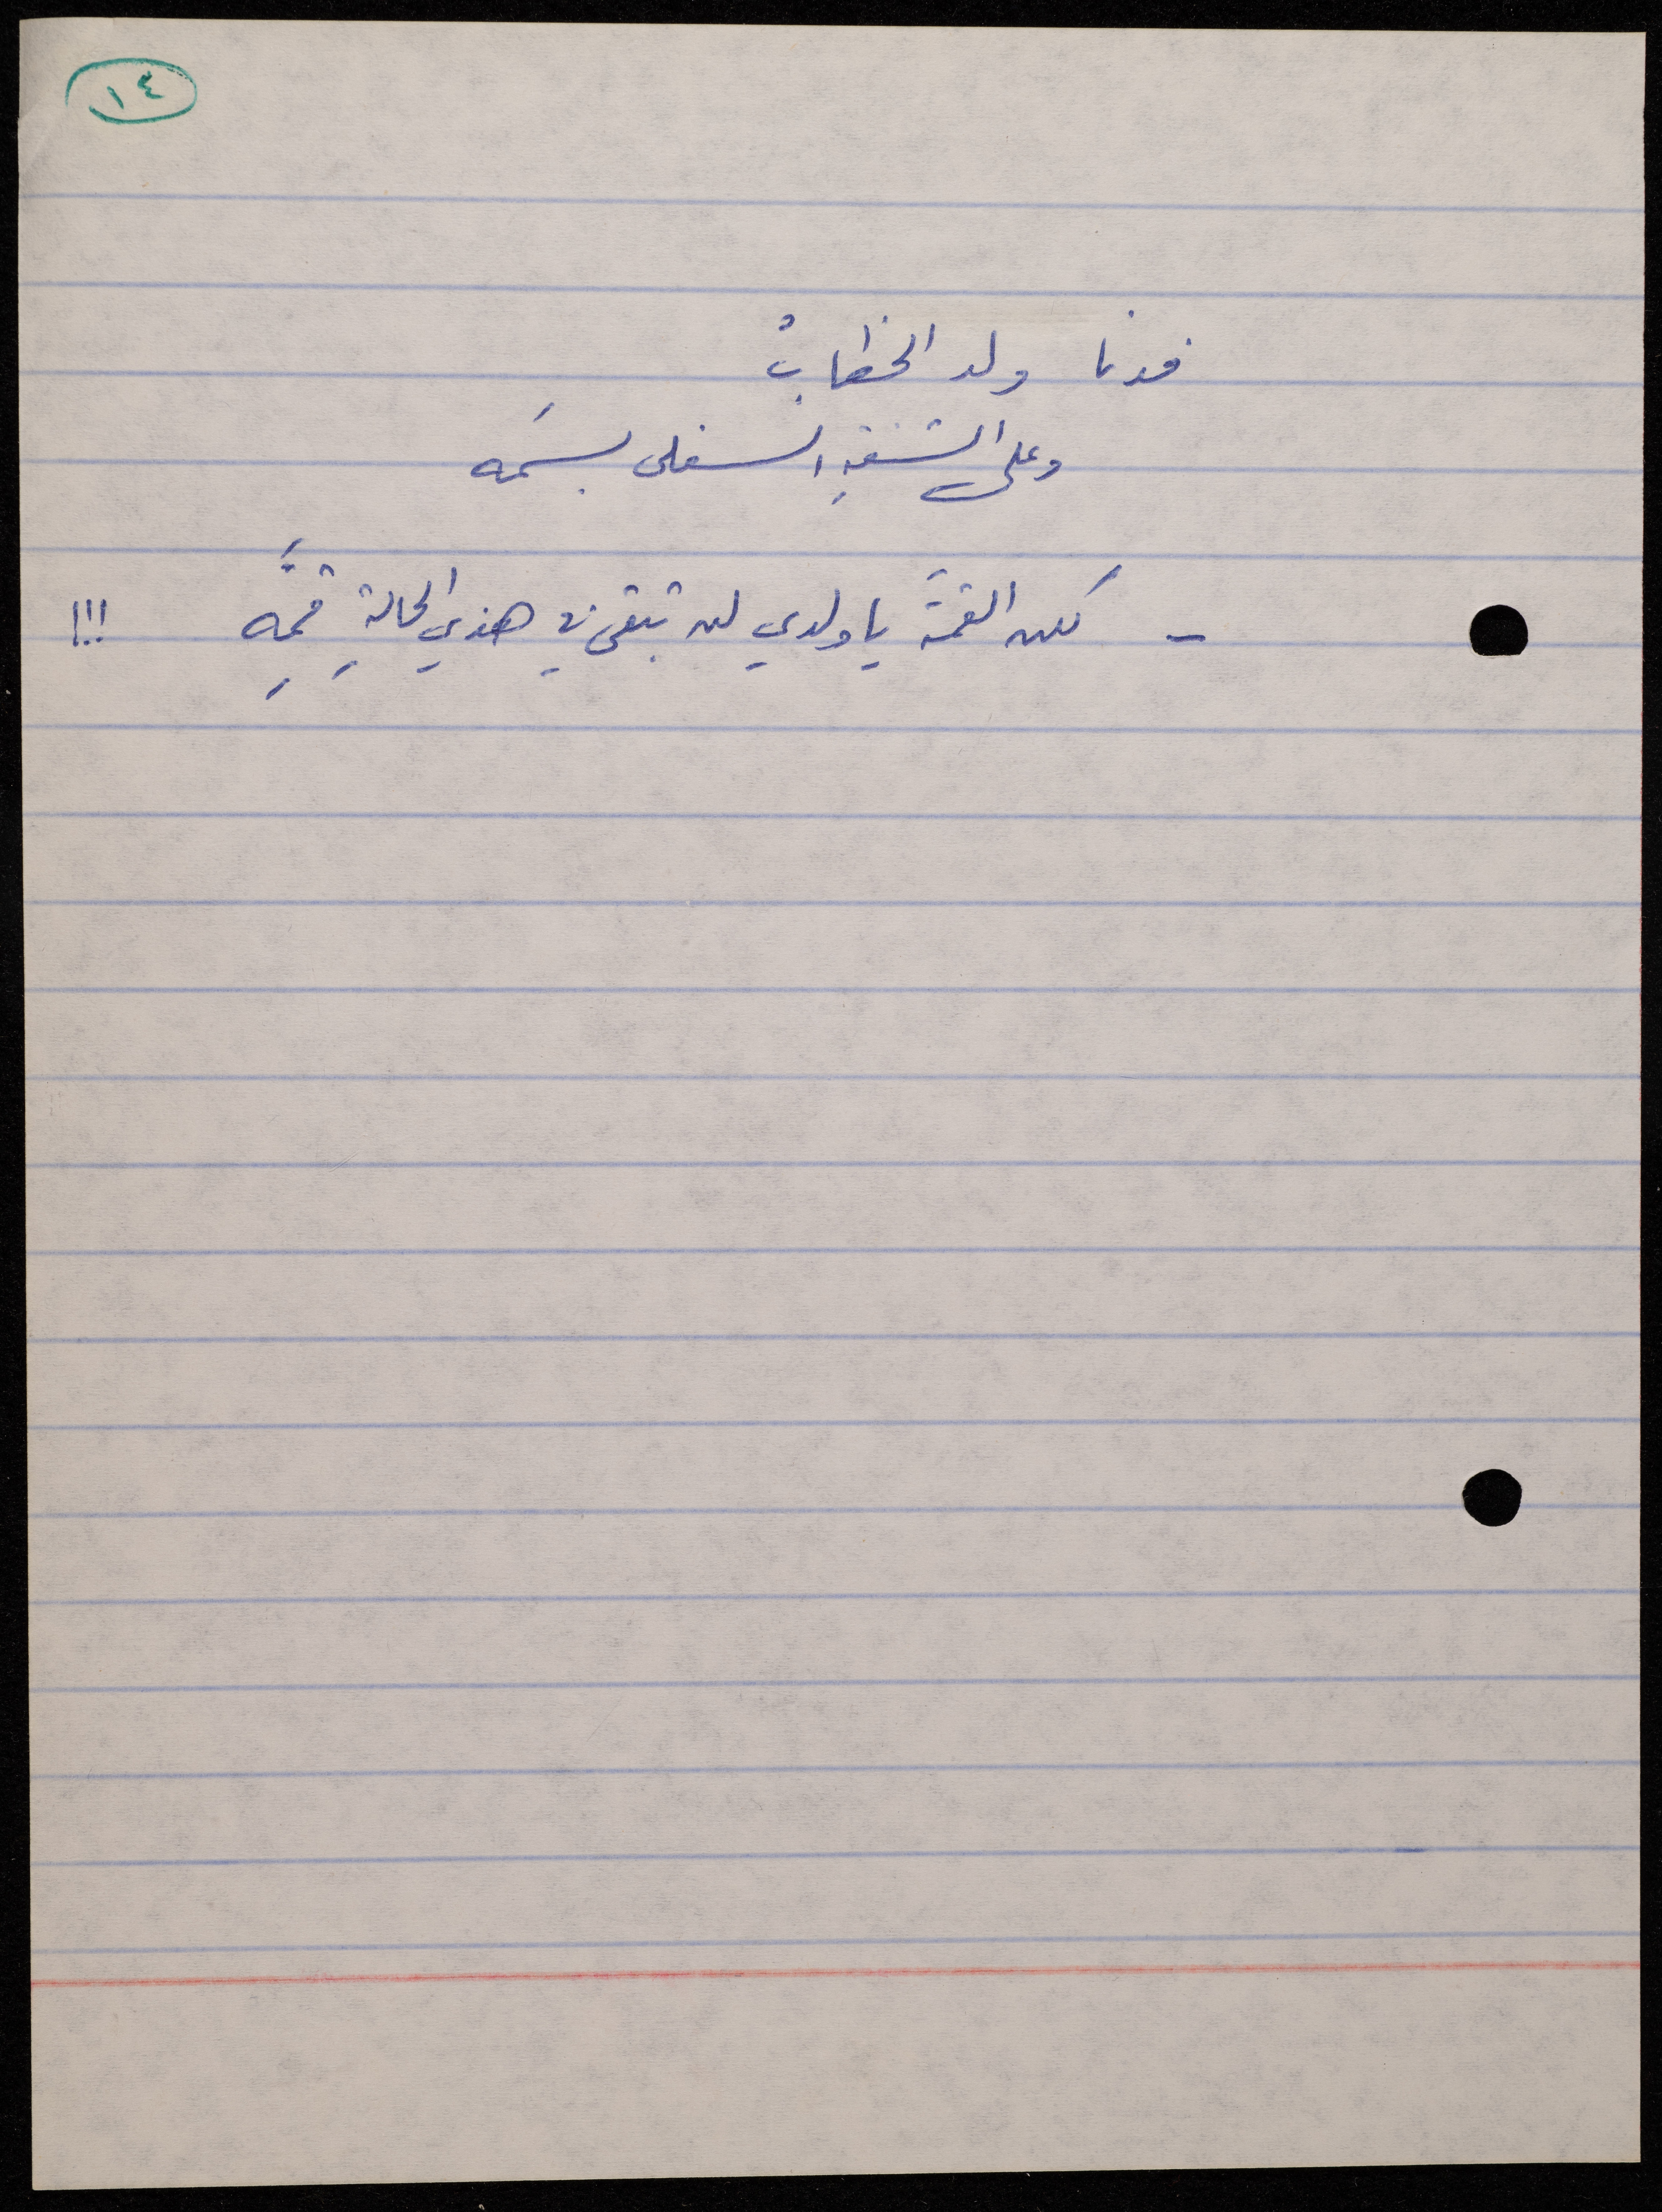 ١٤
فدنا ولد الخطابْ
وعلى الشفةِ السفلى بسَمه
- لكن القمةَ يا ولدي لن تبقى في هذي الحالةِ قمَّهِ !!!